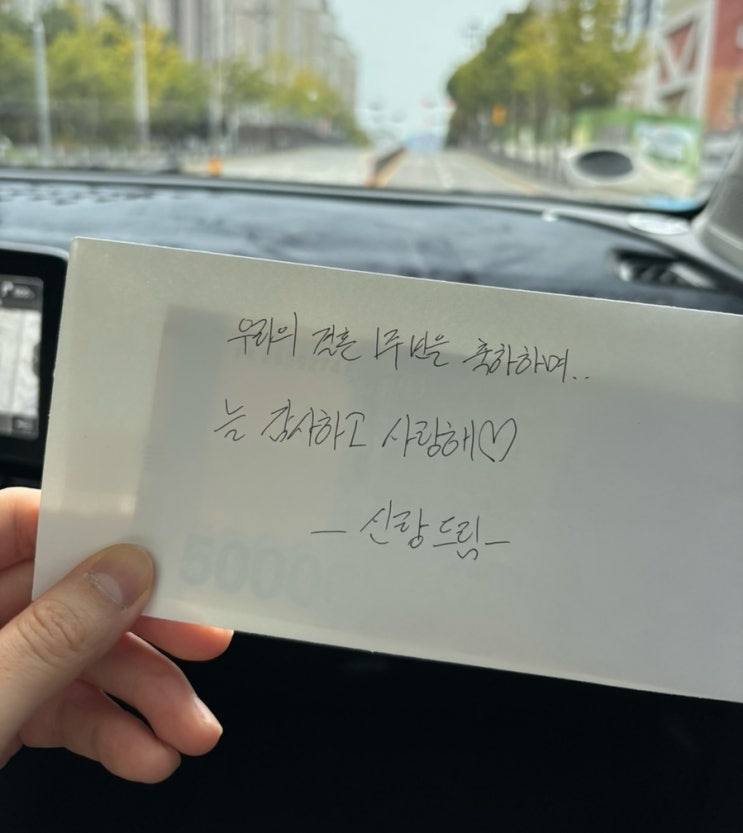 우리의 결혼 1주년을 축하하며..
늘 감사하고 사랑해♡
- 신랑 드림 -
5000